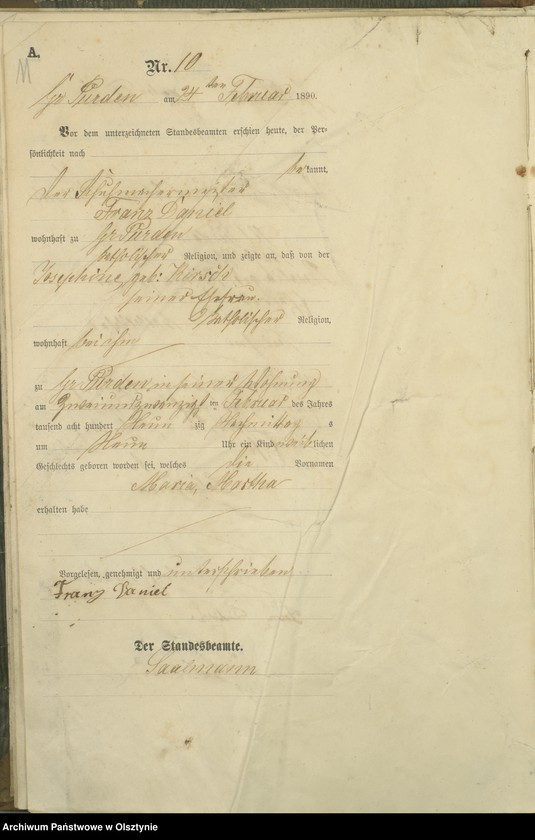 A.
11
Nr. 10
Gr Purden am 24ten Februar 1890.
Vor dem unterzeichneten Standesbeamten erschien heute, der Per-
sönlichkeit nach
bekannt,
der Schuhmachermeister
Franz Daniel
wohnhaft zu Gr Purden
katholischer Religion, und zeigte an, daß von der
Josephine, geb:
seiner Ehefrau
katholischer Religion,
wohnhaft bei ihm
zu Gr Purden, in seiner Wohnung
am Zweiundzwanzigsten Februar des Jahres
tausend acht hundert Neunzig Vormittags
um Neun Uhr ein Kind weiblichen
Geschlechts geboren worden sei, welches die Vornamen
Maria, Martha
erhalten habe
Vorgelesen, genehmigt und unterschrieben
Franz Daniel
Der Standesbeamte.
Archiwum Państwowe w Olsztynie